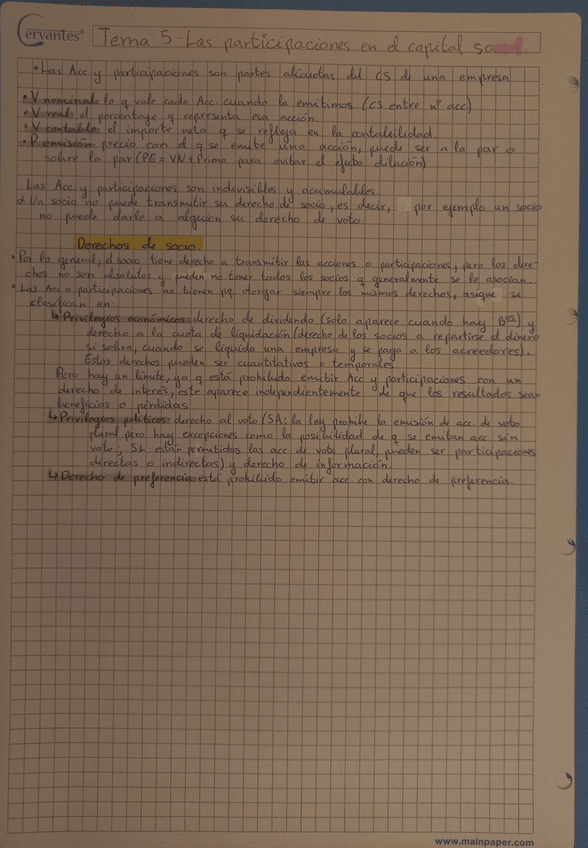 Cervantes®
Tema 5 - Las participaciones en el capital social
• Las Acc y participaciones son partes alícuotas del CS de una empresa
• V nominal: lo q vale cada Acc cuando la emitimos (CS entre nº acc)
• V real: el porcentaje q representa esa acción.
• V contable: el importe neto q se refleja en la contabilidad.
• P emisión: precio con el q se emite una acción, puede ser a la par o
sobre la par (PE = VN + Prima para evitar el efecto dilución)
Las Acc y participaciones son indivisibles y acumulables.
Un socio no puede transmitir su derecho de socio, es decir, por ejemplo un socio
no puede darle a alguien su derecho de voto
Derechos de socio.
• Por lo general, el socio tiene derecho a transmitir las acciones o participaciones, pero los dere-
chos no son absolutos y pueden no tener todos los socios q generalmente se le asocian.
• Las Acc o participaciones no tienen pq otorgar siempre los mismos derechos, asique se
clasifican en:
↳ Privilegios económicos: derecho de dividendo (solo aparece cuando hay Bºs) y
derecho a la cuota de liquidación (derecho de los socios a repartirse el dinero
si sobra, cuando se liquida una empresa y se paga a los acreedores).
Estos derechos pueden ser cuantitativos o temporales.
Pero hay un límite, ya q está prohibido emitir Acc y participaciones con un
derecho de interés, este aparece independientemente de que los resultados sean
beneficios o pérdidas
↳ Privilegios políticos: derecho al voto (SA: la ley prohibe la emisión de acc. de voto
plural pero hay excepciones como la posibilidad de q se emitan acc sin
voto; SL: están permitidas las acc de voto plural, pueden ser participaciones
directas o indirectas) y derecho de información.
↳ Derecho de preferencia: está prohibido emitir acc. con derecho de preferencia.
www.mainpaper.com